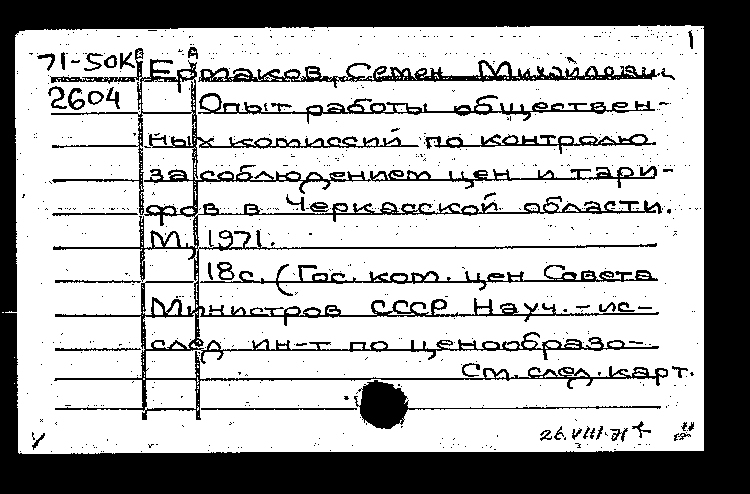 1
71-50к Ермаков, Семен Михайлович.
2604 Опыт работы обществен-
ных комиссий по контролю
за соблюдением цен и тари-
фов в Черкасской области.
М., 1971.
18с. (Гос. ком. цен Совета
Министров СССР Науч.-ис-
след ин-т по ценообразо-
См. след. карт.
26.VIII.71